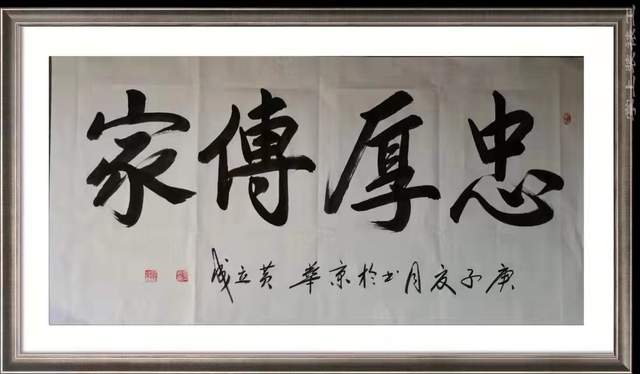 忠厚傳家
庚子夏月书於京華 黄立成